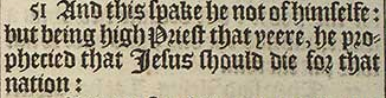 51 And this spake he not of himselfe:
but being high Priest that yeere, he pro-
phecied that Jesus should die for that
nation: